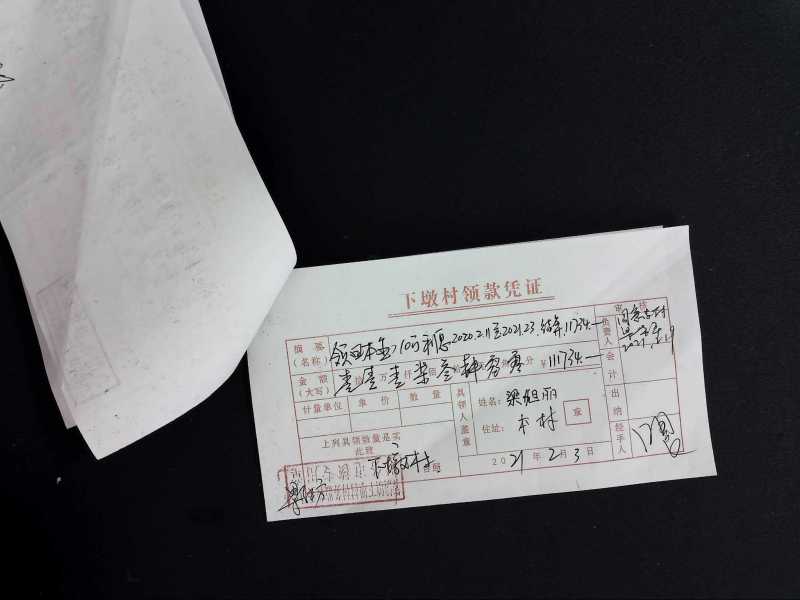 下墩村领款凭证
摘要(名称) 领回本金10万利息2020.2.11至2021.2.3.结算.111734.—
金额(大写) 壹 壹 壹 柒 叁 肆 零 零 ¥111734.—
计量单位 单价 数量
上列具领数量是实
此致
下墩村
具领人盖章
姓名:梁妲丽
住址:本村
章
2021年2月3日
审核
负责人 同意支付
会计
出纳
经手人